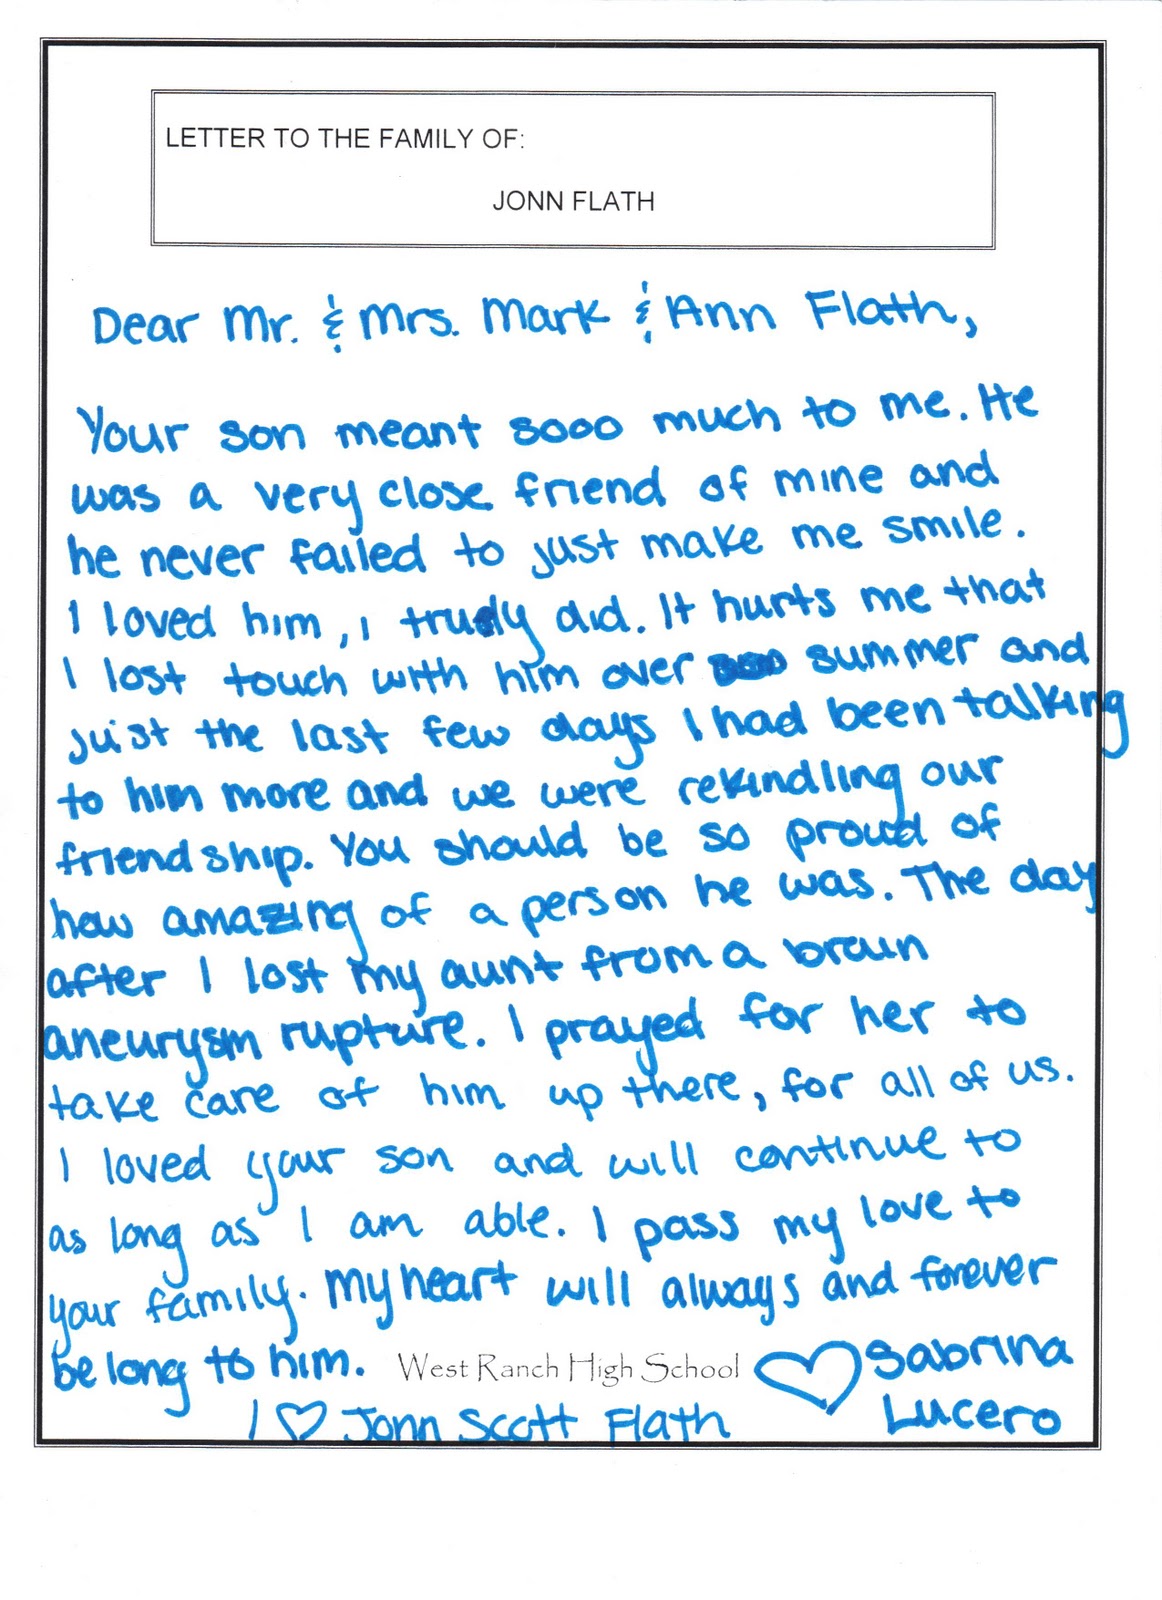 LETTER TO THE FAMILY OF:
JONN FLATH
Dear Mr. & Mrs. Mark & Ann Flath,
Your son meant sooo much to me. He
was a very close friend of mine and
he never failed to just make me smile.
I loved him, I truly did. It hurts me that
I lost touch with him over summer and
just the last few days I had been talking
to him more and we were rekindling our
friendship. You should be so proud of
how amazing of a person he was. The day
after I lost my aunt from a brain
aneurysm rupture. I prayed for her to
take care of him up there, for all of us.
I loved your son and will continue to
as long as I am able. I pass my love to
your family. My heart will always and forever
belong to him.
West Ranch High School
♡ Sabrina
Lucero
I ♡ Jonn Scott Flath